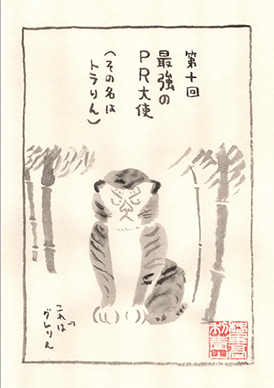 第十回
最強の
PR大使
(その名は
トラりん)
これは
グレりん